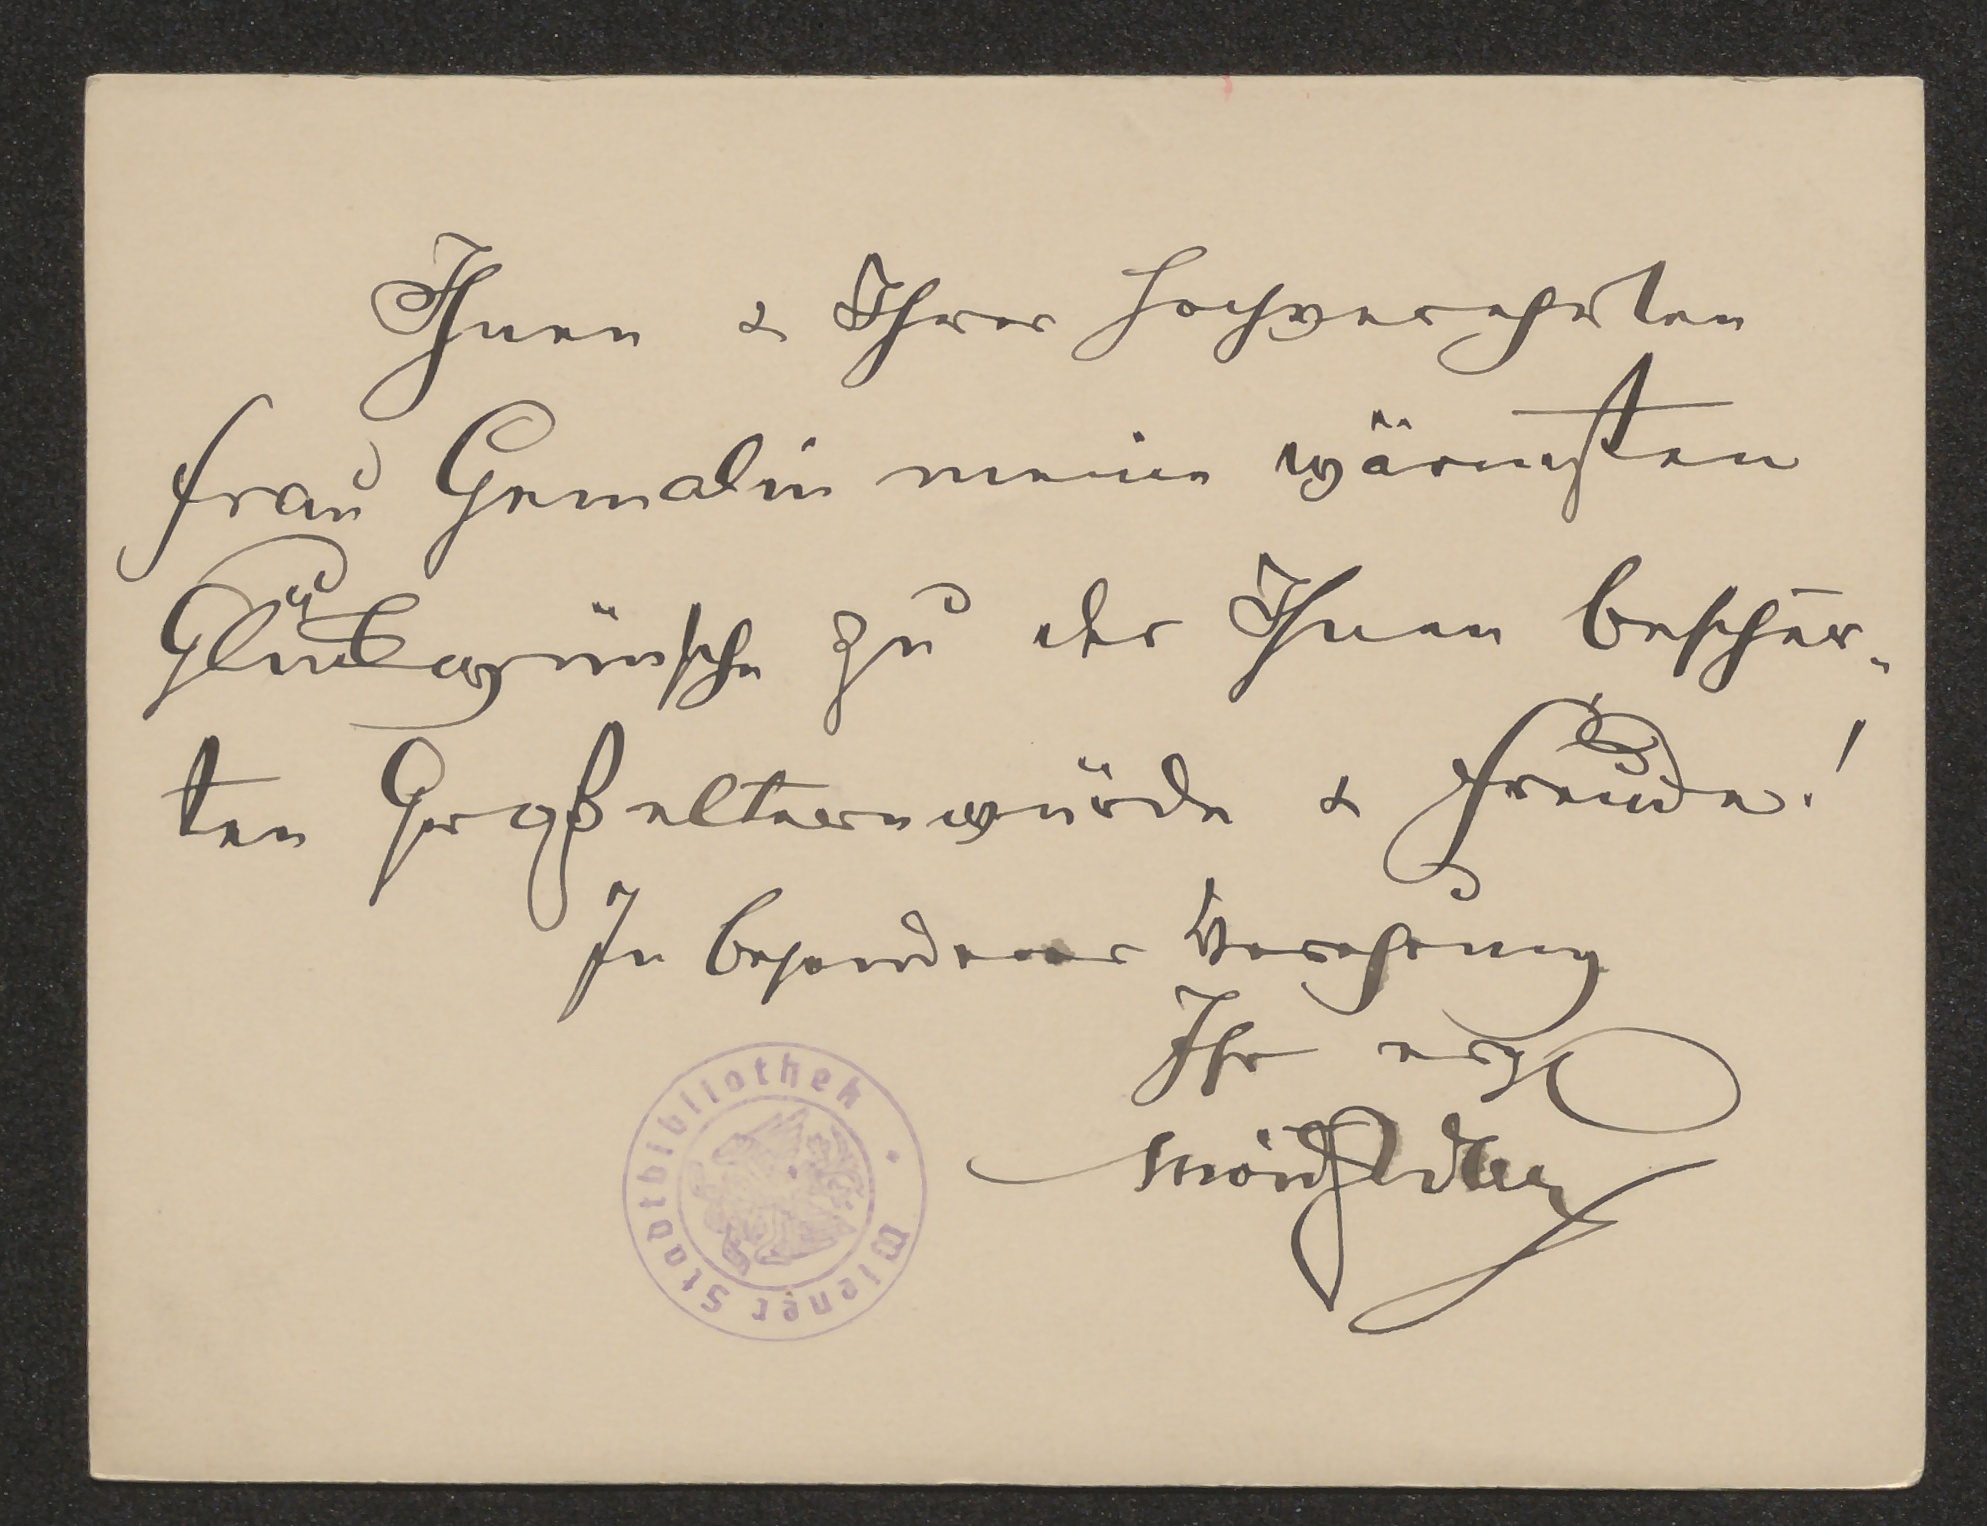 Ihnen & Ihrer hochverehrten
Frau Gemalin meine wärmsten
Glückwünsche zu der Ihnen bescher-
ten Großelternwürde & Freude!
In besonderer Verehrung
Ihr erg
Wiener Stadtbibliothek